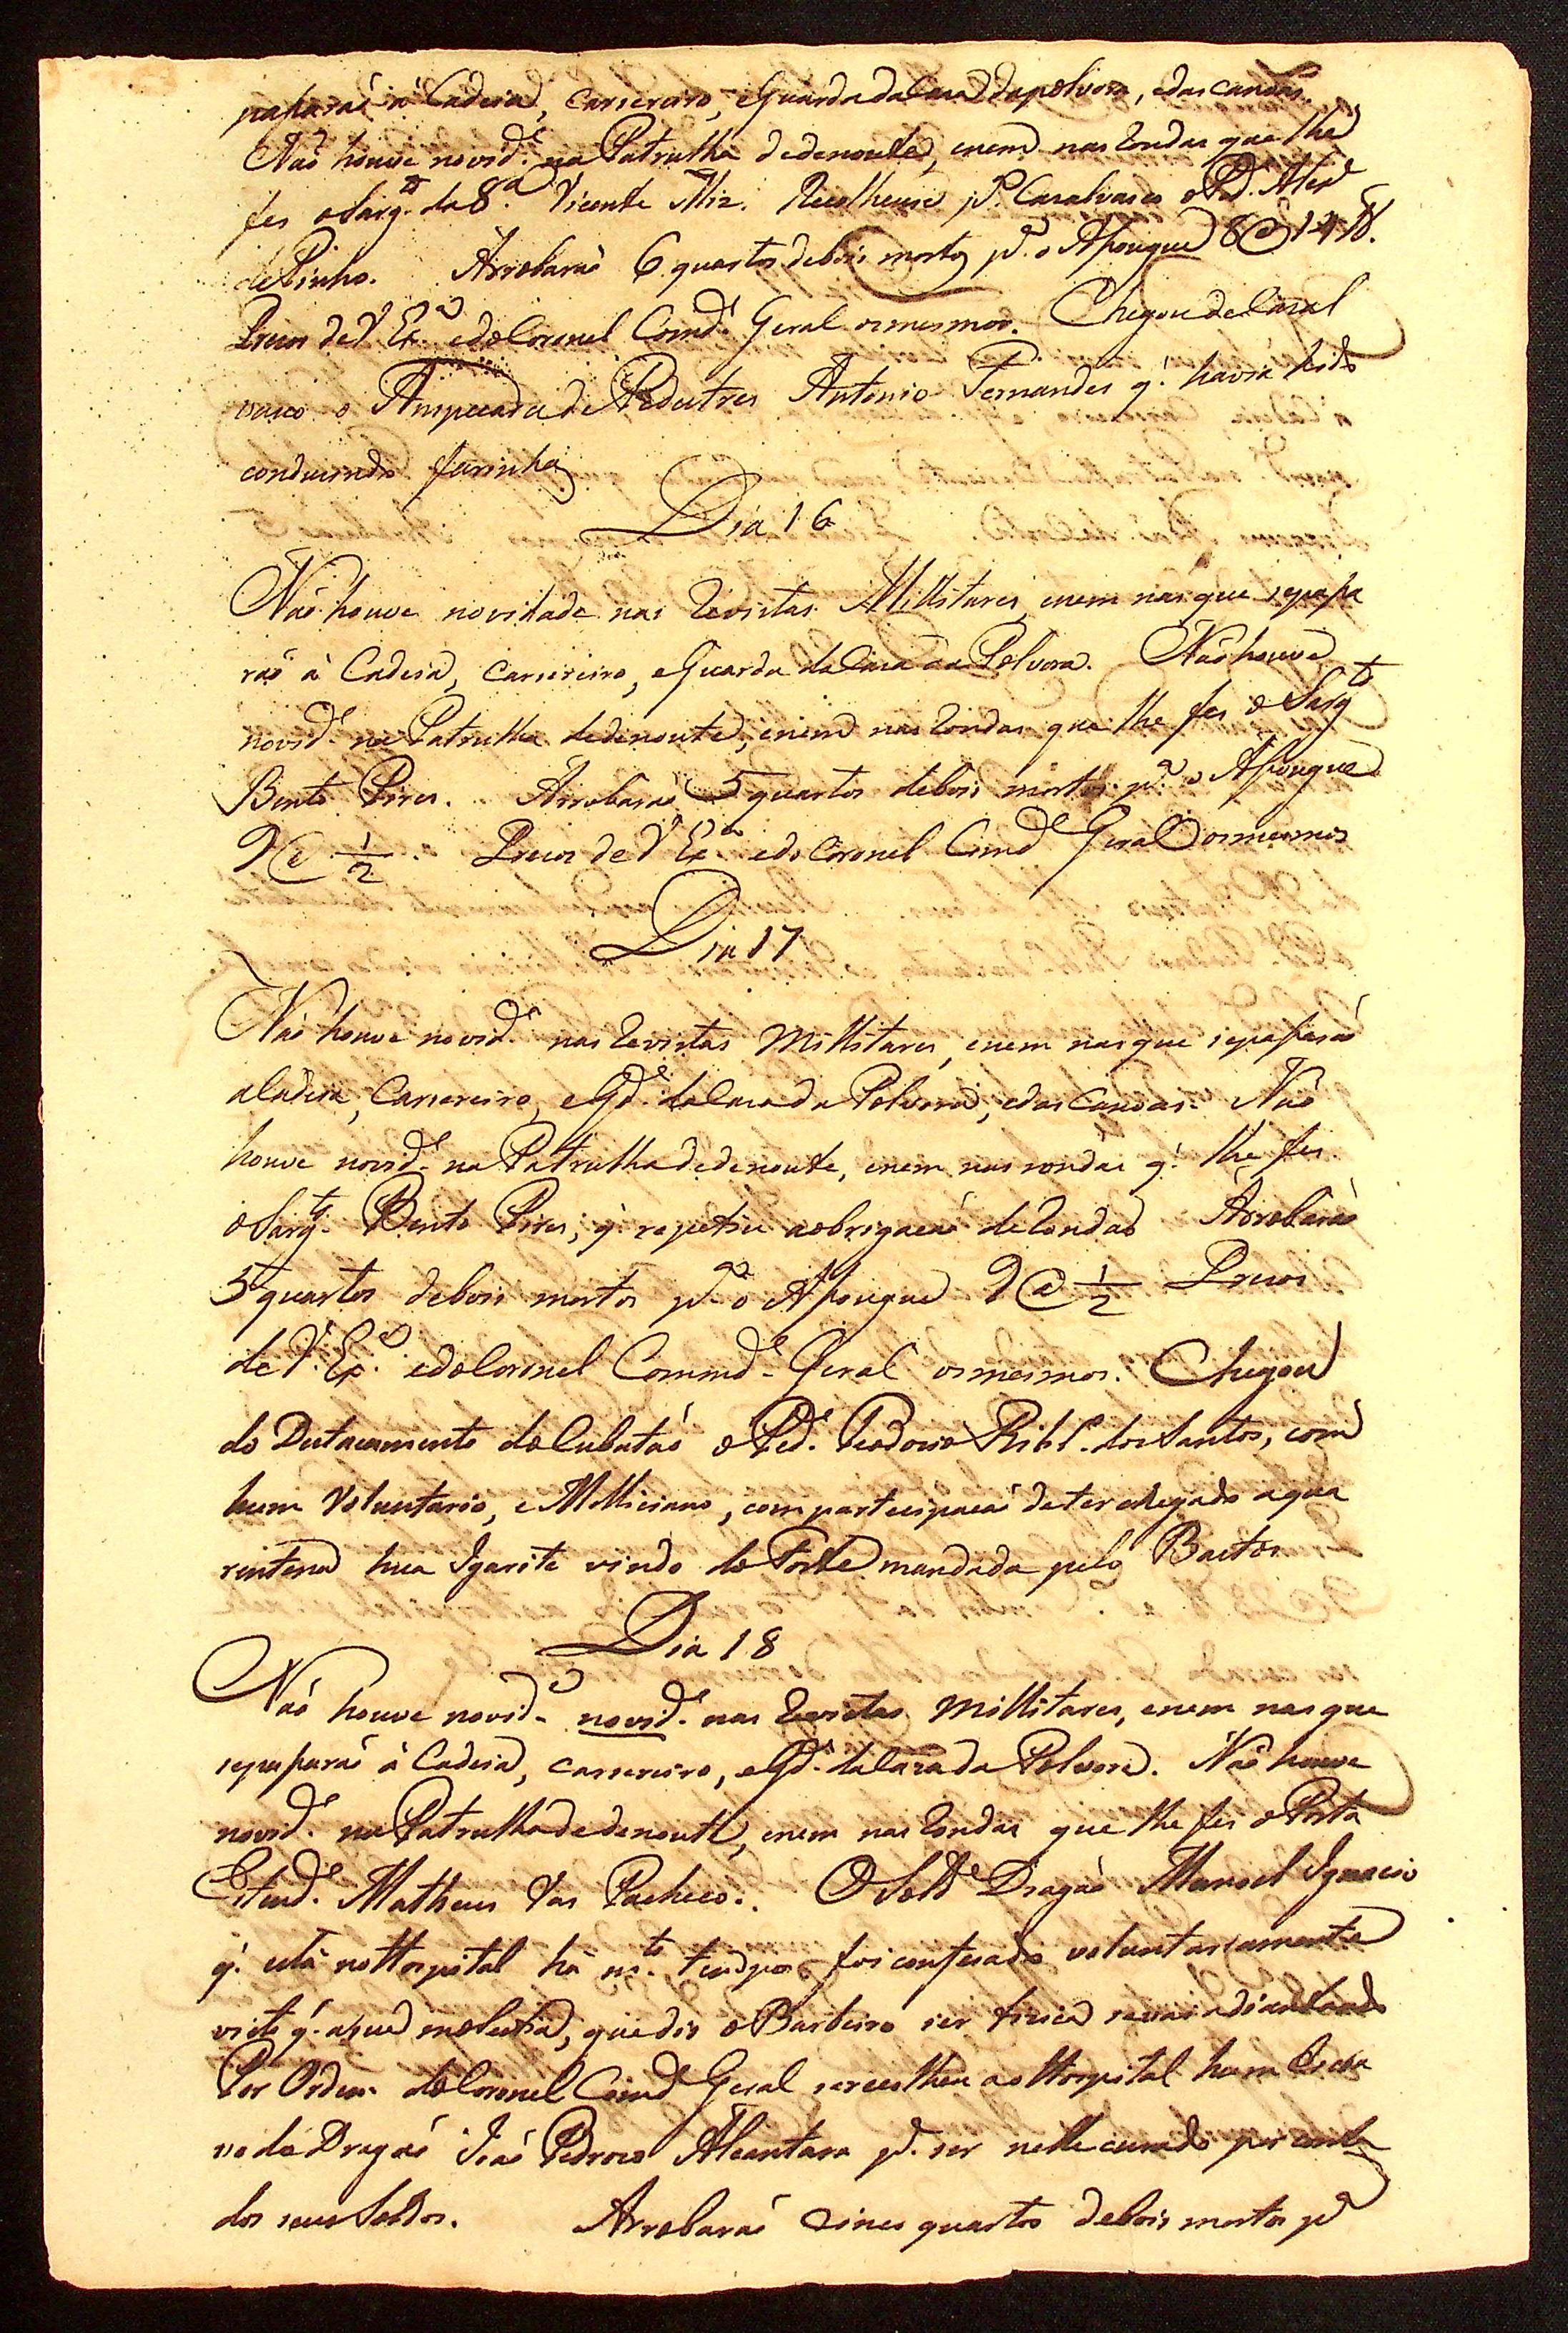 paſaraõ á Cadeia, carsereiro, eGuarda da Caza da polvora, e das canoas.
Naõ houve novid.e na Patrulha dedenoute, enem nas Rondas que lhe
fes o Sarg.to da 8.a Vicente Miz. Recolheuse p.a Casalvasco o Pd.e Alex.e
dePinho. Arrobaraõ 6 quartos debois mortos p.a o Aſougue 8@ 14 lb.
Prezos de V. Ex.a edo Coronel Comd.e Geral os mesmos. Chegou de Casal
vasco o Anspecada de Pedestres Antonio Fernandes q. havia hido
conduzindo farinha
Dia 16
Naõ houve novidade nas Revistas Millitares, enem nas que sepaſa
raõ à Cadeia, carsereiro, eGuarda da Caza da Polvora. Naõ houve
novid.e na Patrulha dedenoute, enem nas Rondas que lhe fes o Sarg.to
Bento Pires. Arrobaraõ 5 quartos debois mortos p.a o Aſougue
9@ 1/2. Prezos de V. Ex.a edo Coronel Comd.e Geral os mesmos
Dia 17
Naõ houve novid.e nas Revistas Millitares, enem nas que sepaſaraõ
aCadeia, Carsereiro, eGd.e da Caza da Polvora, edas Canoas. Naõ
houve novid.e na Patrulha dedenoute, enem nas rondas q. lhe fes
o Sarg.to Bento Pires, q. repetiu aobrigacaõ de Rondas Arrobaraõ
5 quartos debois mortos p.a o Aſougue 9@ 1/2 Prezos
de V. Ex.a edo Coronel Commd.e Geral os mesmos. Chegou
do Destacamento do Cubataõ o Pd.e Teodozio Rib.o dos Santos, com
hum Voluntario, e Milliciano, com partecipacaõ deter chegado aqua
rentena hua Igarite vindo do Forte mandada pelo Bastos
Dia 18
Naõ houve novid.e novid.e nas Revistas Millitares, enem nas que
sepaſaraõ à Cadeia, carsereiro, eGd.e da Caza da Polvora. Naõ houve
novid.e na Patrulha dedenoute, enem nas Rondas que lhe fes o Porta
Estend.e Matheus Vas Pacheco. O Sold.e Dragaõ Manoel Ignacio
q. está no Hospital há m.to tempo foi confeçado voluntariamente
visto q. asua molestia, que dis o Barbeiro ser tizica sevai adiantando
Por Ordem do Coronel Comd.e Geral serecolheu ao Hospital hum Escra
vo do Dragaõ Joaõ Pedrozo Alcantara p.a ser nelle curado por conta
dos seus Soldos. Arrobaraõ Sinco quartos debois mortos p.a